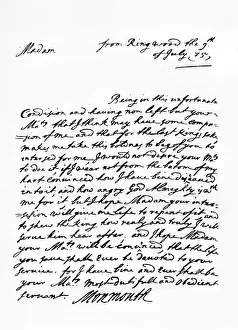 Madam
from Ringwood the 9th
of July 85
Being in this unfortunate
Condision and having non left but your
Maty that I think may have some compa-
sion of me and that for the last Kings sake
makes me take this boldnes to beg of you to
intersed for me I would not desire your Maty
to doe it if I wear not from the botom of my
hart convinced how I have bine disceaved
into it and how angry God Almighty is with
me for it but I hope Madam your inter-
sesion will give me life to repent of it and
to shew the King how realy and truly I will
serve him hear after and I hope Madam
your Maty will be convinced that the life
you save shall ever be devoted to your
service for I have bine and ever shall be
your Maty most dutifull and obedient
servant Monmouth